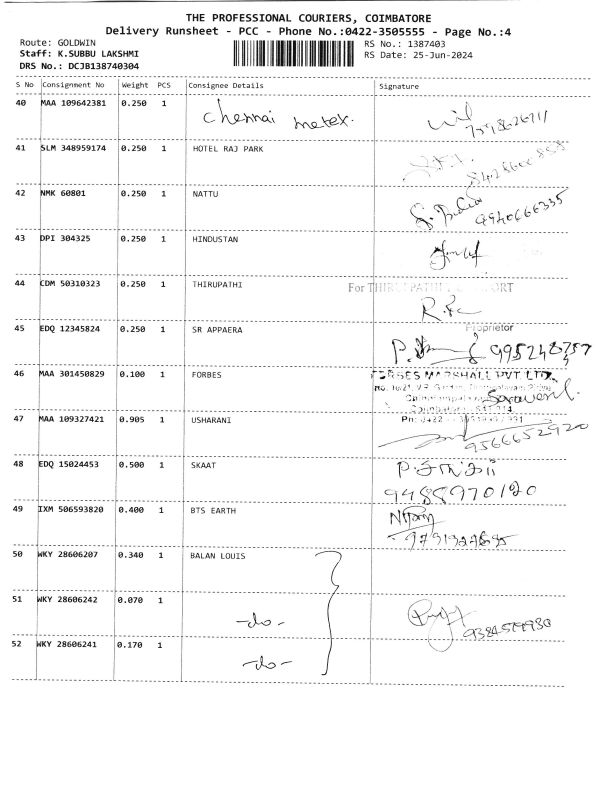 THE PROFESSIONAL COURIERS, COIMBATORE
Delivery Runsheet - PCC - Phone No.:0422-3505555 - Page No.:4
Route: GOLDWIN RS No.: 1387403
Staff: K.SUBBU LAKSHMI RS Date: 25-Jun-2024
DRS No.: DCJB138740304
S No Consignment No Weight PCS Consignee Details Signature
40 MAA 109642381 0.250 1 Chennai metex.
41 SLM 348959174 0.250 1 HOTEL RAJ PARK
42 NMK 60801 0.250 1 NATTU 9940666335
43 DPI 304325 0.250 1 HINDUSTAN
44 CDM 50310323 0.250 1 THIRUPATHI For
R.
Proprietor
45 EDQ 12345824 0.250 1 SR APPAERA P.
46 MAA 301450829 0.100 1 FORBES FORBES MARSHALL PVT. LTD.
Saravanan
47 MAA 109327421 0.905 1 USHARANI 9566652920
48 EDQ 15024453 0.500 1 SKAAT
9488970120
49 IXM 506593820 0.400 1 BTS EARTH
50 WKY 28606207 0.340 1 BALAN LOUIS
51 WKY 28606242 0.070 1 -do-
52 WKY 28606241 0.170 1 -do-